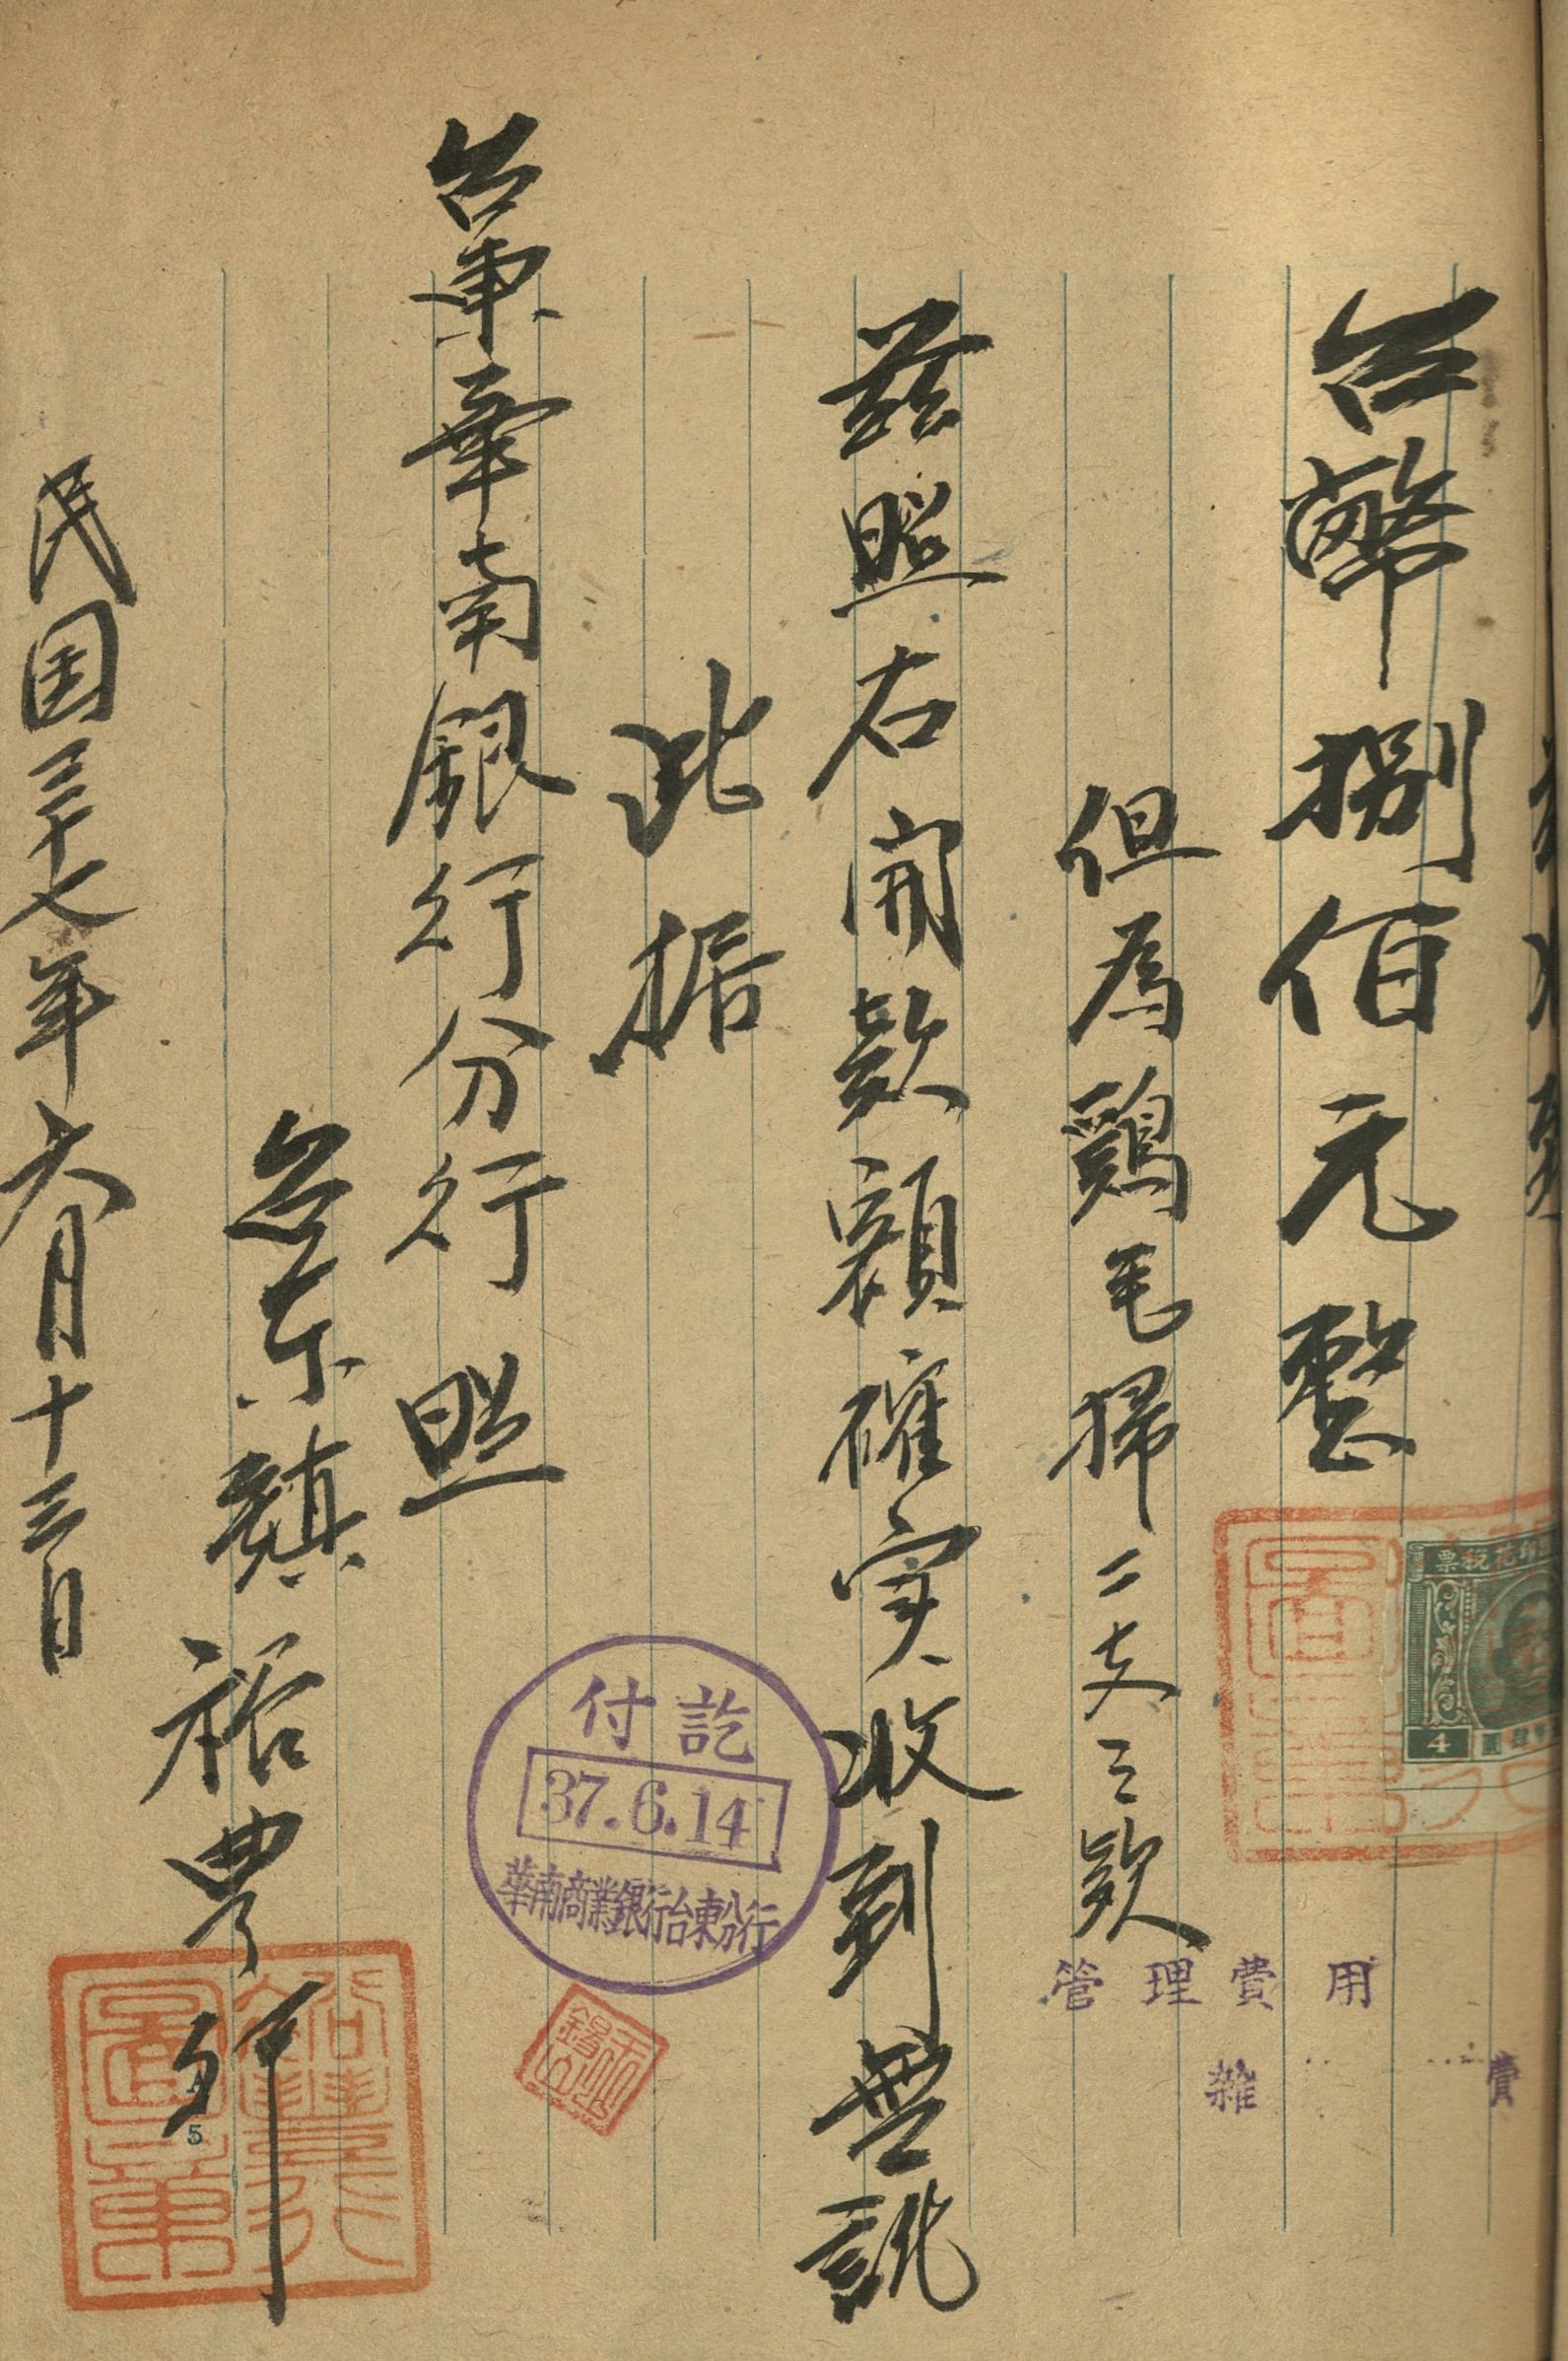 台幣捌佰元整
但為鷄毛掃二支之款
茲照右開款額確実收到無訛
此据
台東華南銀行分行照
台东鎮裕豊行
民国三十七年六月十三日
印花税票
4
付訖
37.6.14
華南商業銀行台東分行
管理費用
雜費
5